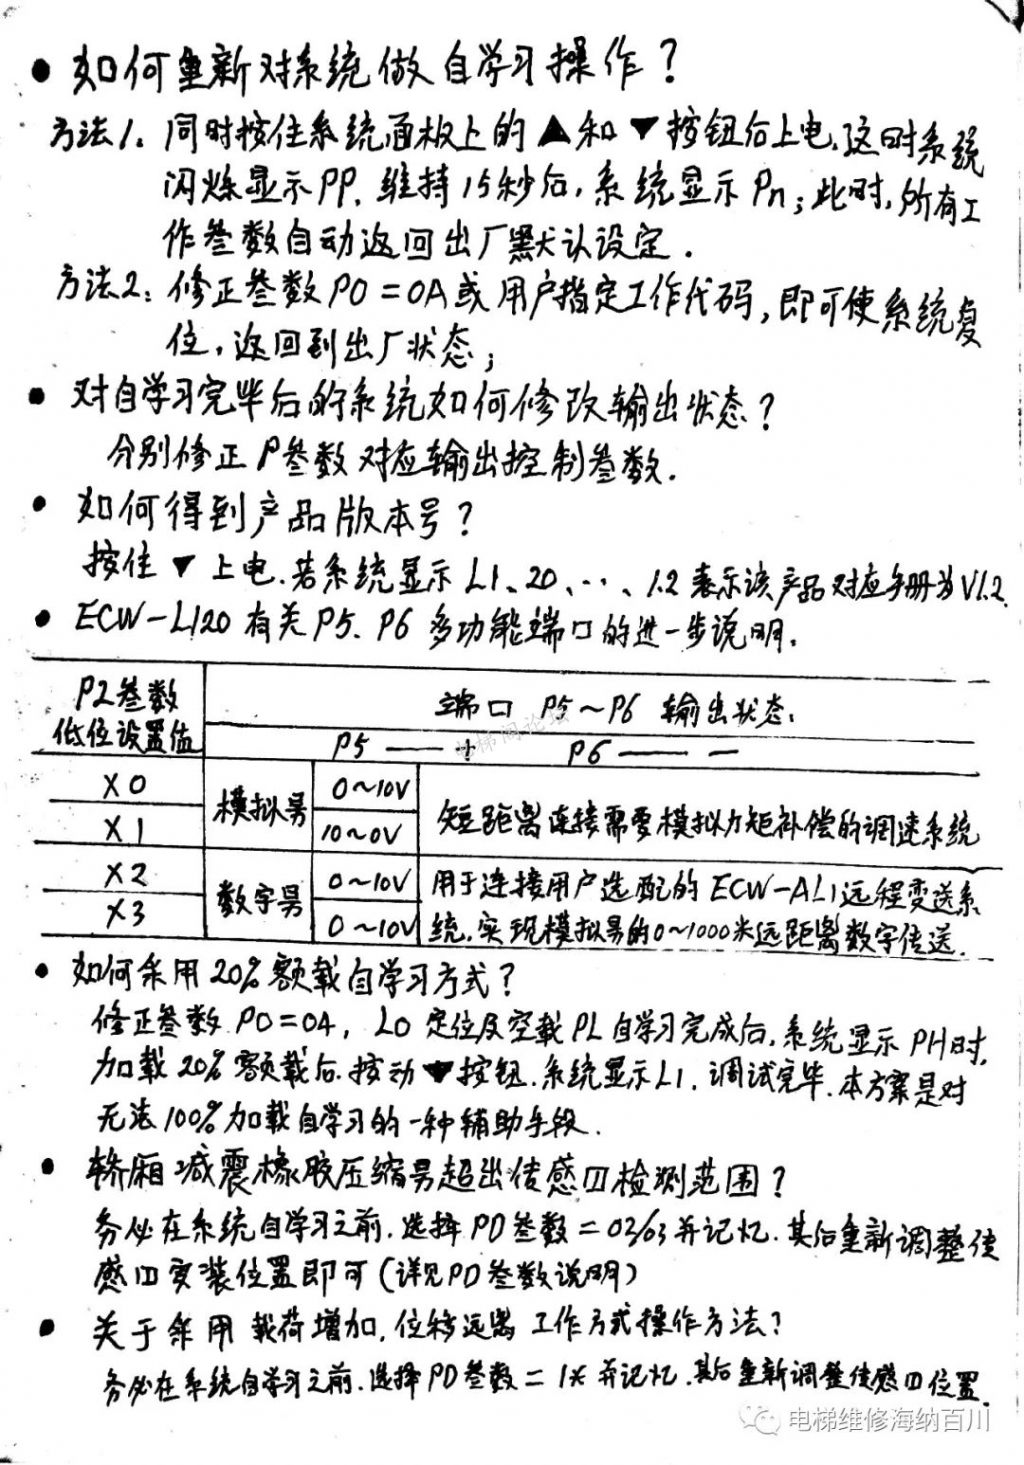 • 如何重新对系统做自学习操作？
方法1. 同时按住系统面板上的▲和▼按钮后上电,这时系统
闪烁显示PP. 维持15秒后,系统显示Pn;此时,所有工
作参数自动返回出厂默认设定.
方法2: 修正参数P0=0A或用户指定工作代码,即可使系统复
位,返回到出厂状态;
• 对自学习完毕后的系统如何修改输出状态？
分别修正P参数对应输出控制参数.
• 如何得到产品版本号？
按住▼上电.若系统显示L1、20、…、1.2表示该产品对应手册为V1.2.
• ECW-L120有关P5、P6多功能端口的进一步说明.
P2参数
低位设置值
端口P5~P6输出状态:
P5 —— + P6 —— —
X0
X1
模拟量
0~10V
10~0V
短距离连接需要模拟力矩补偿的调速系统
X2
X3
数字量
0~10V
0~10V
用于连接用户选配的ECW-AL1远程变送系
统,实现模拟量的0~1000米远距离数字传送.
• 如何采用20%额载自学习方式？
修正参数P0=04, L0定位及空载PL自学习完成后,系统显示PH时,
加载20%额载后.按动▼按钮.系统显示L1.调试完毕.本方案是对
无法100%加载自学习的一种辅助手段.
• 轿厢减震橡胶压缩量超出传感四检测范围？
务必在系统自学习之前.选择PD参数=03/63并记忆.其后重新调整传
感四安装位置即可(详见PD参数说明)
• 关于采用载荷增加,位移远离工作方式操作方法?
务必在系统自学习之前.选择PD参数=1X并记忆.其后重新调整传感四位置.
电梯维修海纳百川